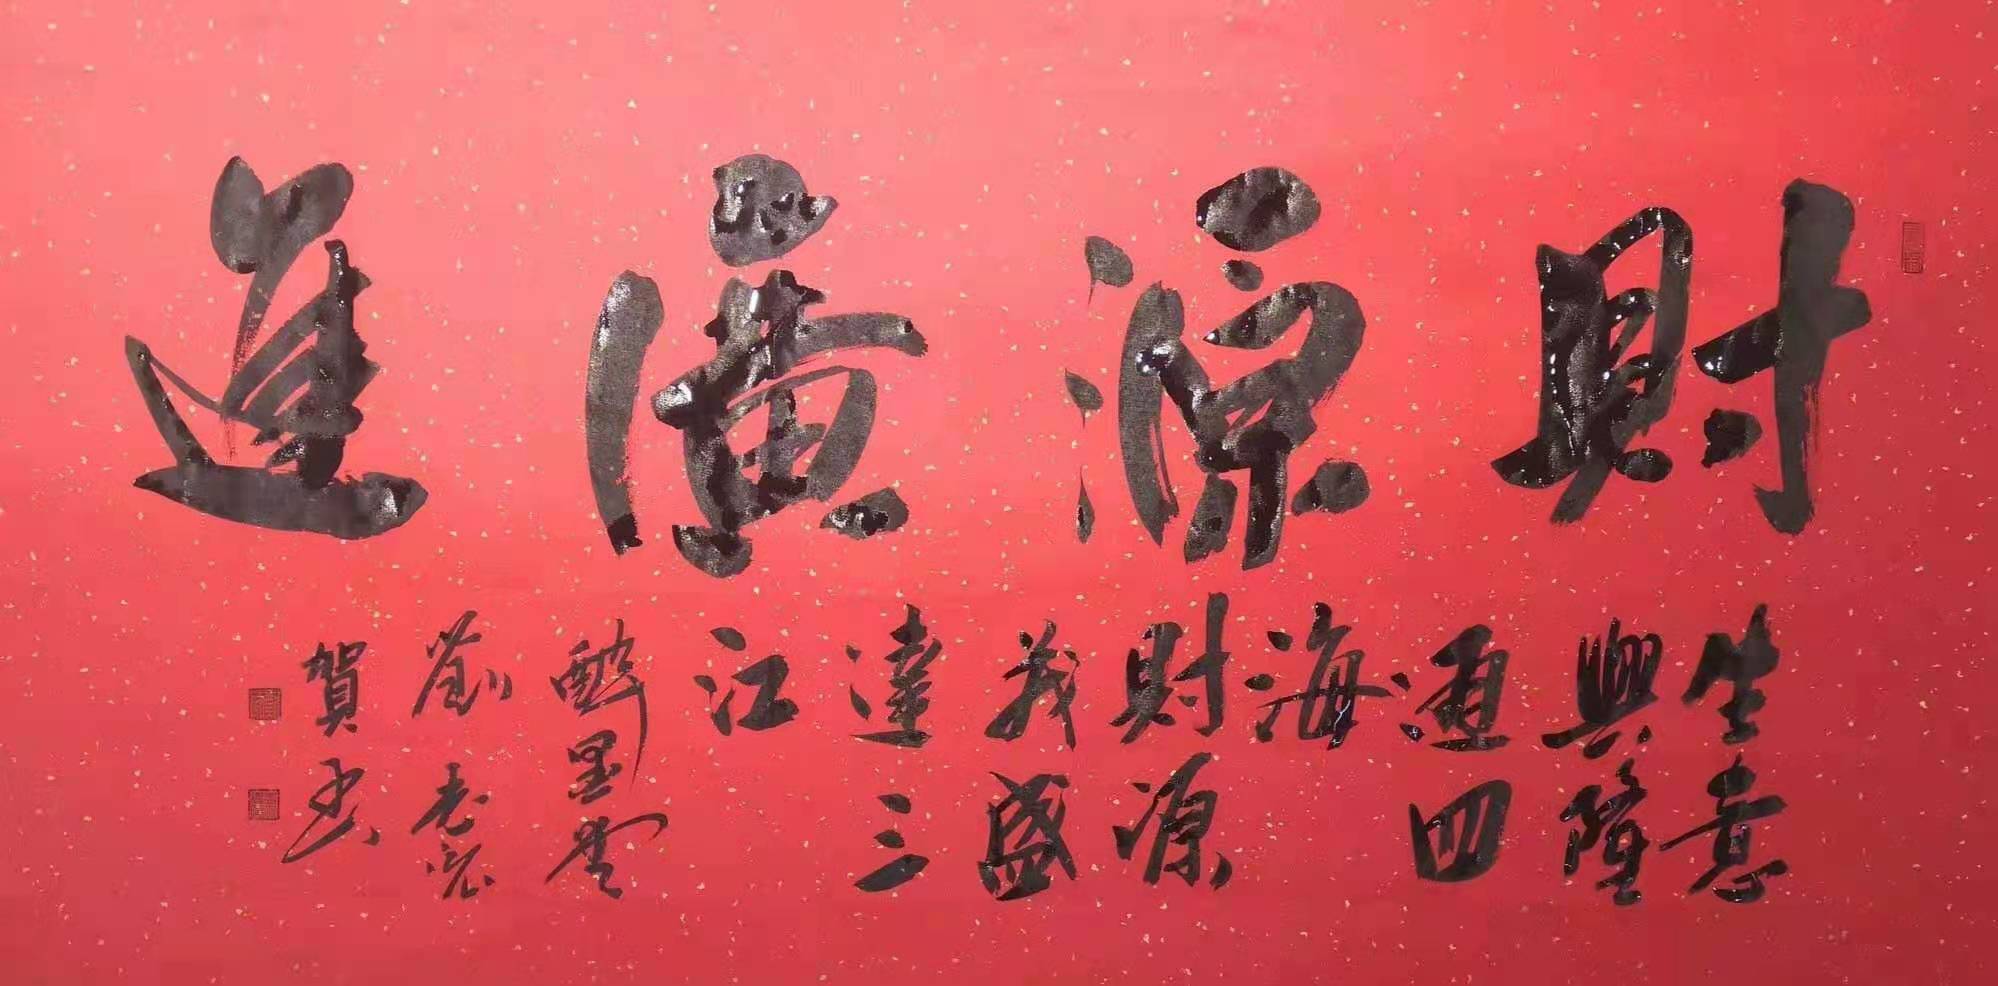 財源廣進
生意
興隆
通四
海
財源
茂盛
達三
江
醉墨堂
劉
賀书